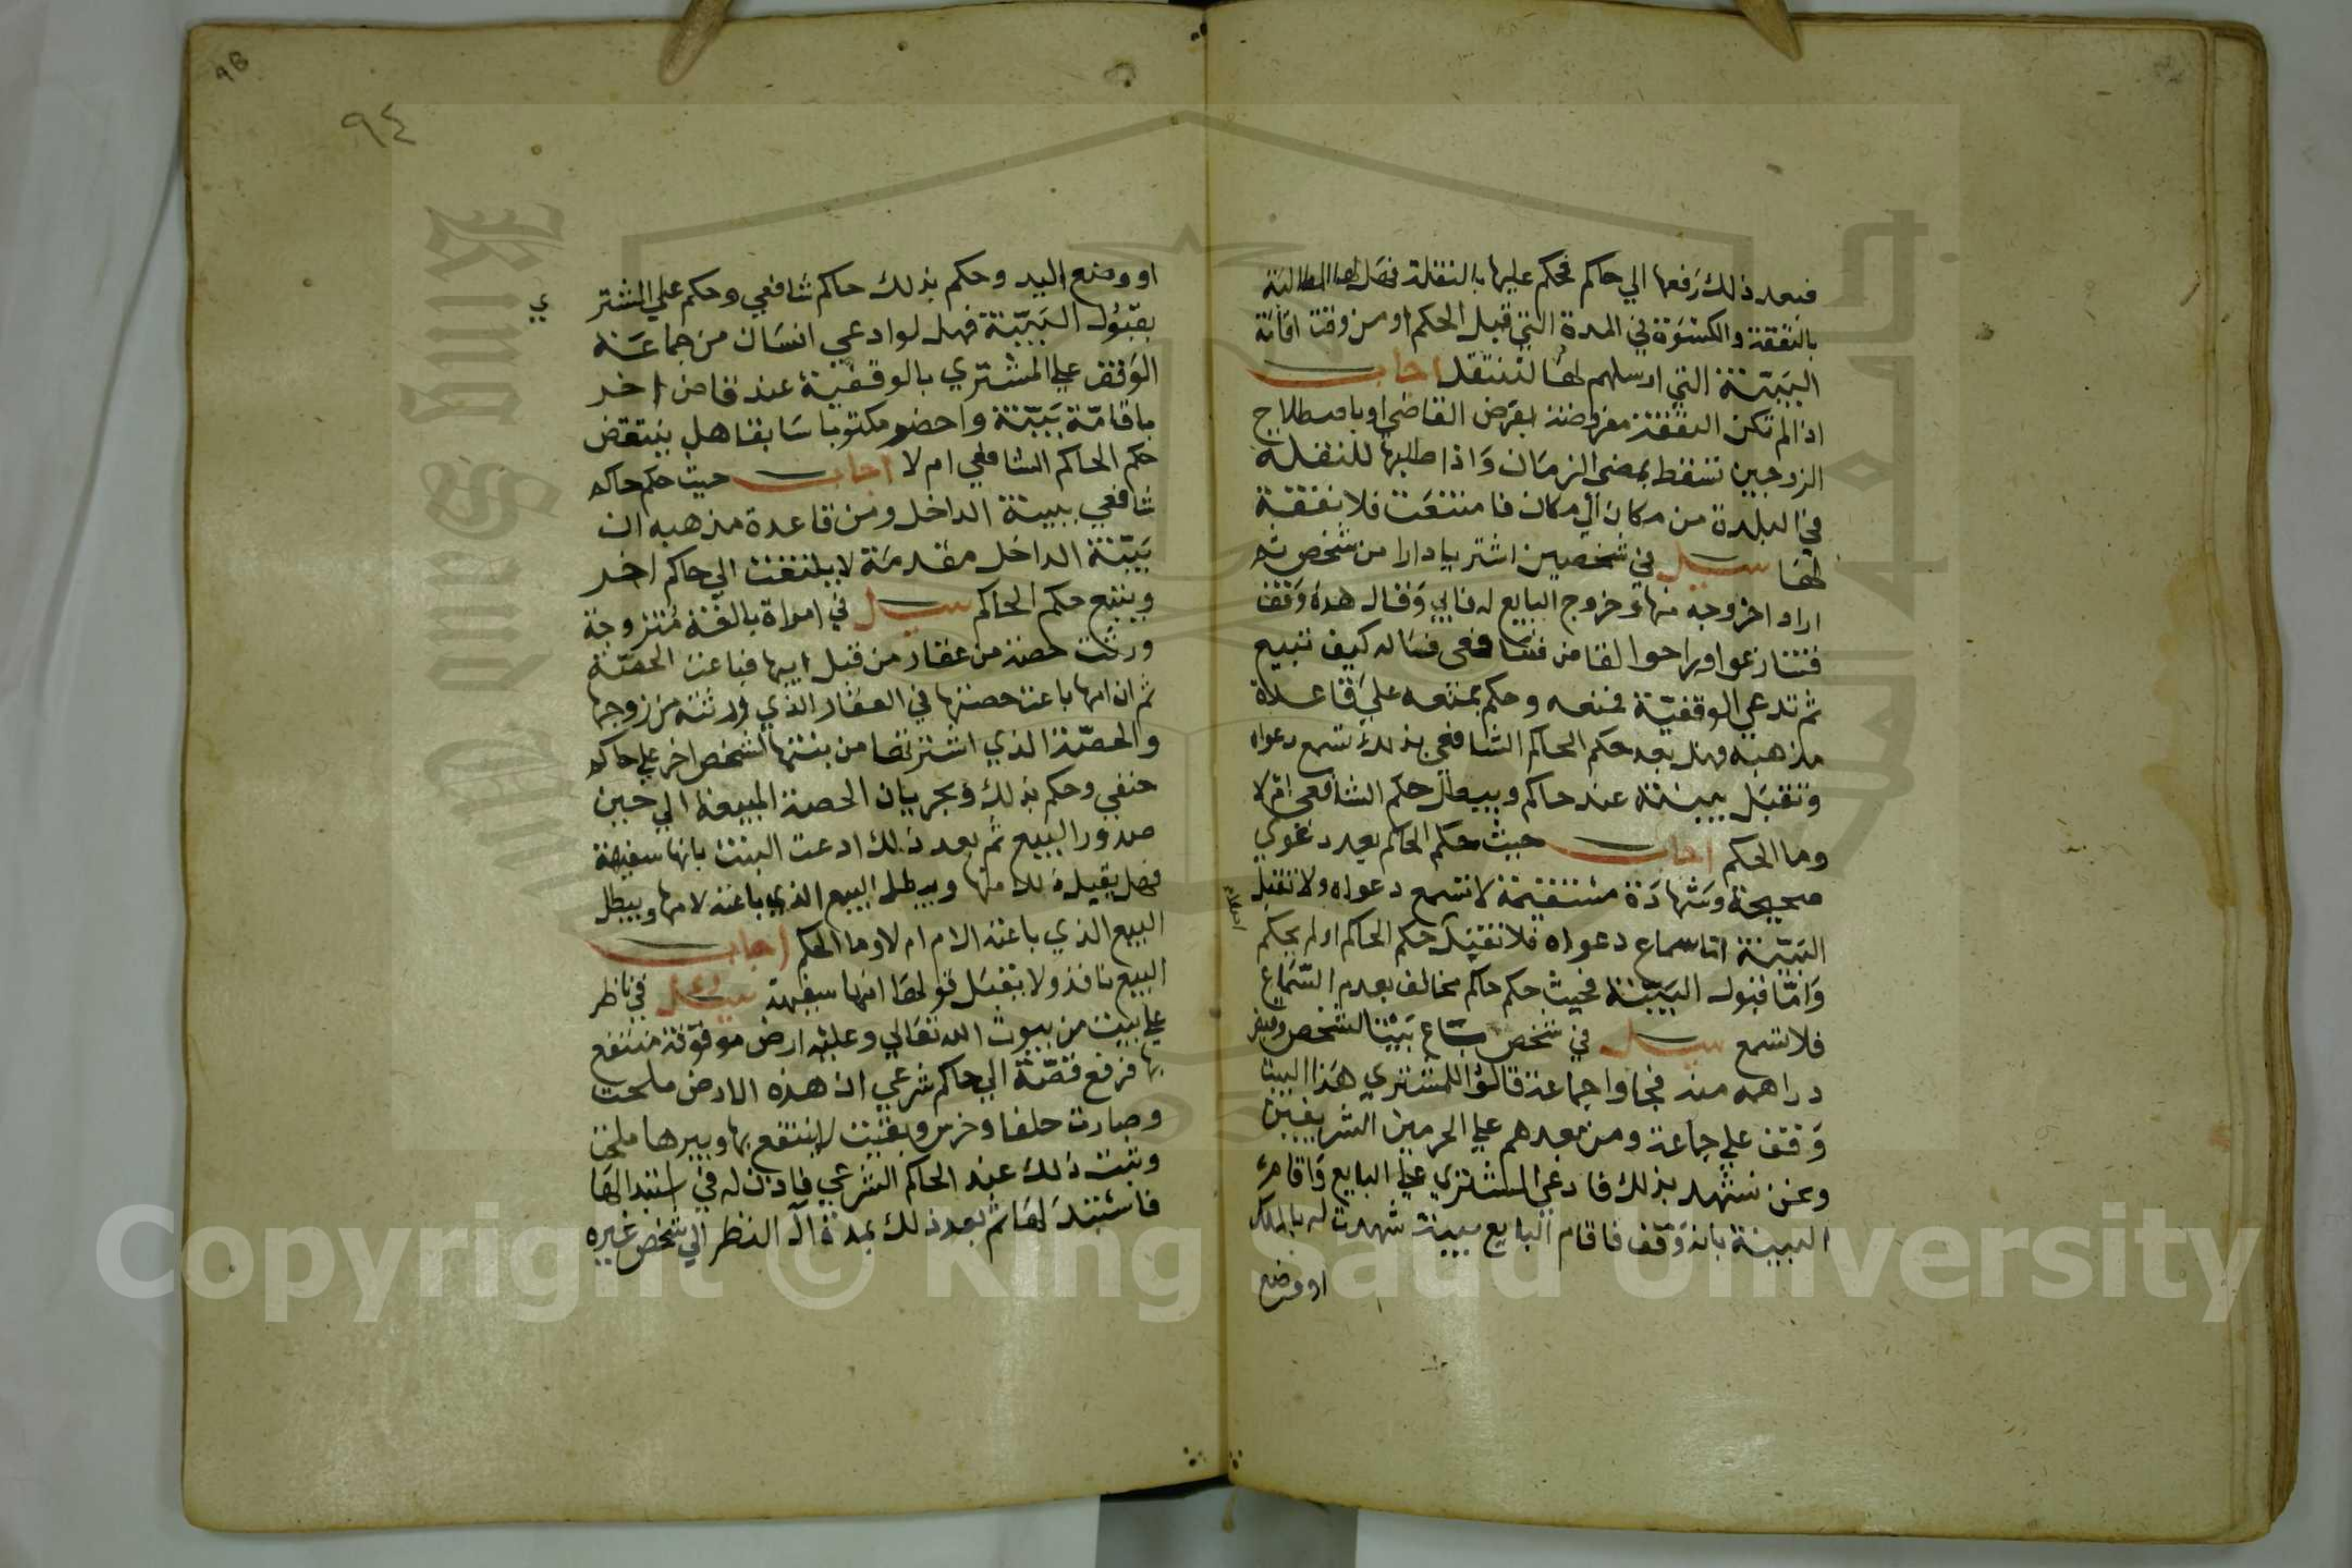 فبعد ذلك رفعها الي حاكم فحكم عليها بالنقلة فهل لها المطالبة
بالنفقة والكسوة في المدة التي قبل الحكم او من وقت اقامة
البينة التي ارسلهم لها لتنتقل اجاب
اذا لم تكن النفقة مفروضة بفرض القاضي او باصطلاح
الزوجين تسقط بمضي الزمان واذا طلبها للنقلة
في البلدة من مكان الي مكان فامتنعت فلا نفقة
لها سيل في شخصين اشتريا دارا من شخص ثم
اراد اخروجه منها وخروج البايع له فابي وقال هذه وقف
فتنازعوا وراحوا لقاض شافعي فساله كيف تبيع
ثم تدعي الوقفية فمنعه وحكم بمنعه علي قاعدة
مذهبه فهل بعد حكم الحاكم الشافعي بذلك تسمع دعواه
وتقبل بينته عند حاكم ويبطل حكم الشافعي ام لا
وما الحكم اجاب حيث حكم الحاكم بعد دعوي
صحيحة وشهادة مستقيمة لا تسمع دعواه ولا تقبل
البينة اما سماع دعواه فلا تقبل حكم الحاكم او لم يحكم
واما قبول البينة فحيث حكم حاكم مخالف بعدم السماع
فلا تسمع سيل في شخص باع بيتا لشخص وقبض
دراهمه منه فجاوا جماعة قالوا للمشتري هذا البيت
وقف علي جماعة ومن بعدهم علي الحرمين الشريفين
ونحن نشهد بذلك فادعي المشتري علي البايع واقام
البينة بانه وقف فاقام البايع بينة شهدت له بالملك
او وضع
٩٤
او وضع اليد وحكم بذلك حاكم شافعي وحكم علي المشتر
ي
بقبول البينة فهل لو ادعي انسان من جماعة
الوقف علي المشتري بالوقفية عند قاض اخر
باقامة بينة واحضر مكتوبا سابقا هل ينتقض
حكم الحاكم الشافعي ام لا اجاب حيث حكم حاكم
شافعي ببينة الداخل ومن قاعدة مذهبه ان
بينة الداخل مقدمة لا يلتفت الي حاكم اخر
ويتبع حكم الحاكم سيل في امراة بالغة متزوجة
ورثت حصة من عقار من قبل ابيها فباعت الحصة
ثم ان امها باعت حصتها في العقار الذي ورثته من زوجها
والحصة الذي اشترتها من بنتها لشخص اخر علي حاكم
حنفي وحكم بذلك وبجريان الحصة المبيعة الي حين
صدور البيع ثم بعد ذلك ادعت البنت بانها سفيهة
فهل يقبل ذلك منها ويبطل البيع الذي باعته لامها ويبطل
البيع الذي باعته الام ام لا وما الحكم اجاب
البيع نافذ ولا يقبل قولها انها سفيهة سيل في ناظر
علي بيت من بيوت الله تعالي وعليه ارض موقوفة منتفع
بها فرفع قصة الي حاكم شرعي ان هذه الارض ملحت
وصارت حلفا وخرس وبقيت لا ينتفع بها وبيرها ملحن
وثبت ذلك عند الحاكم الشرعي فاذن له في استبدالها
فاستبدلها ثم بعد ذلك بمدة آل النظر الي شخص غيره
Copyright © King Saud University